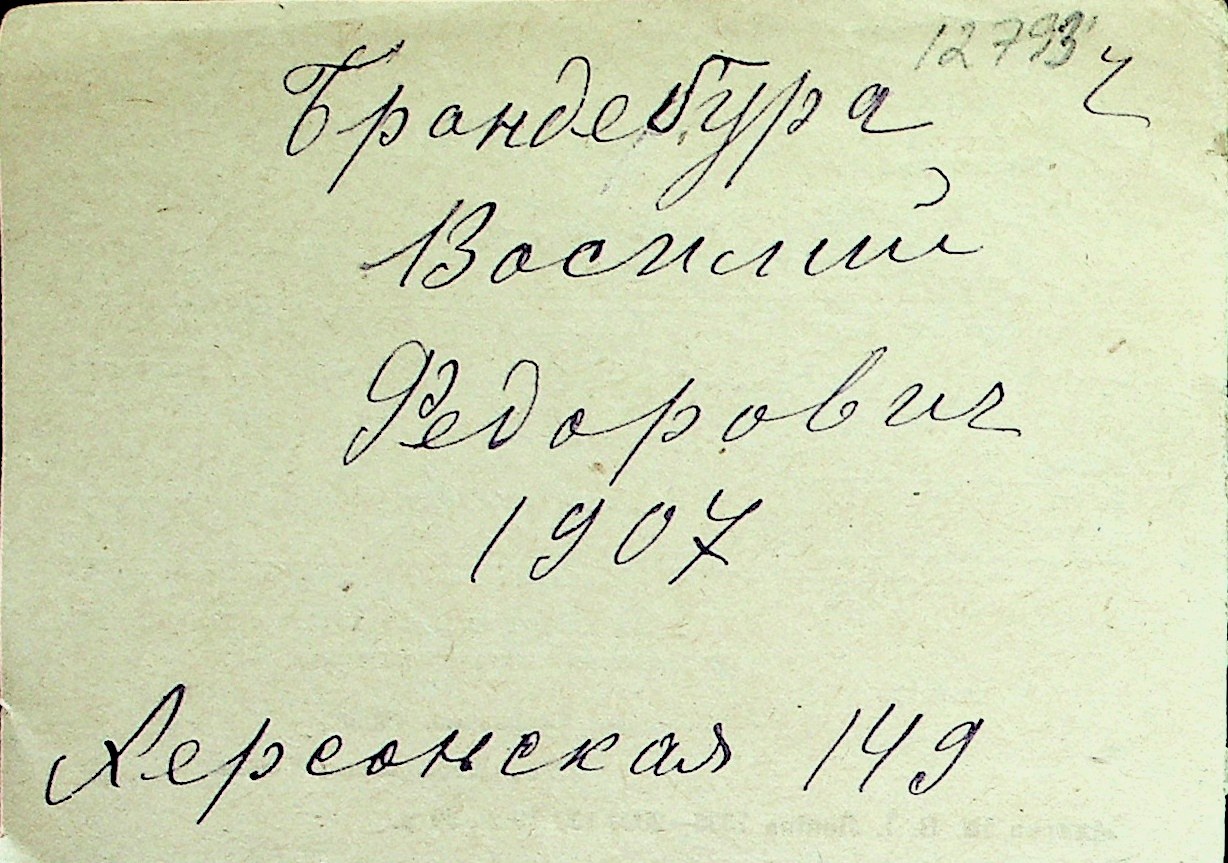 12793
Брандебура ч
Василий
Федорович
1907
Херсонская 149